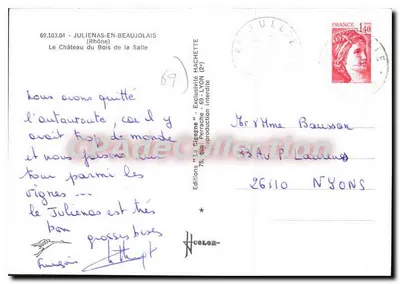 69.103.04 - JULIENAS-EN-BEAUJOLAIS
(Rhône)
Le Château du Bois de la Salle
69
Nous avons quitté
l'autoroute, car il y
avait trop de monde
et nous faisons un
tour parmi les
vignes ...
le Julienas est très
bon
grosses bises
François
Editions "La Cigogne" - Exclusivité HACHETTE
- 69 - LYON (2e)
Reproduction interdite
COLOR
FRANCE
1,40
Mr Mme
26110 NYONS